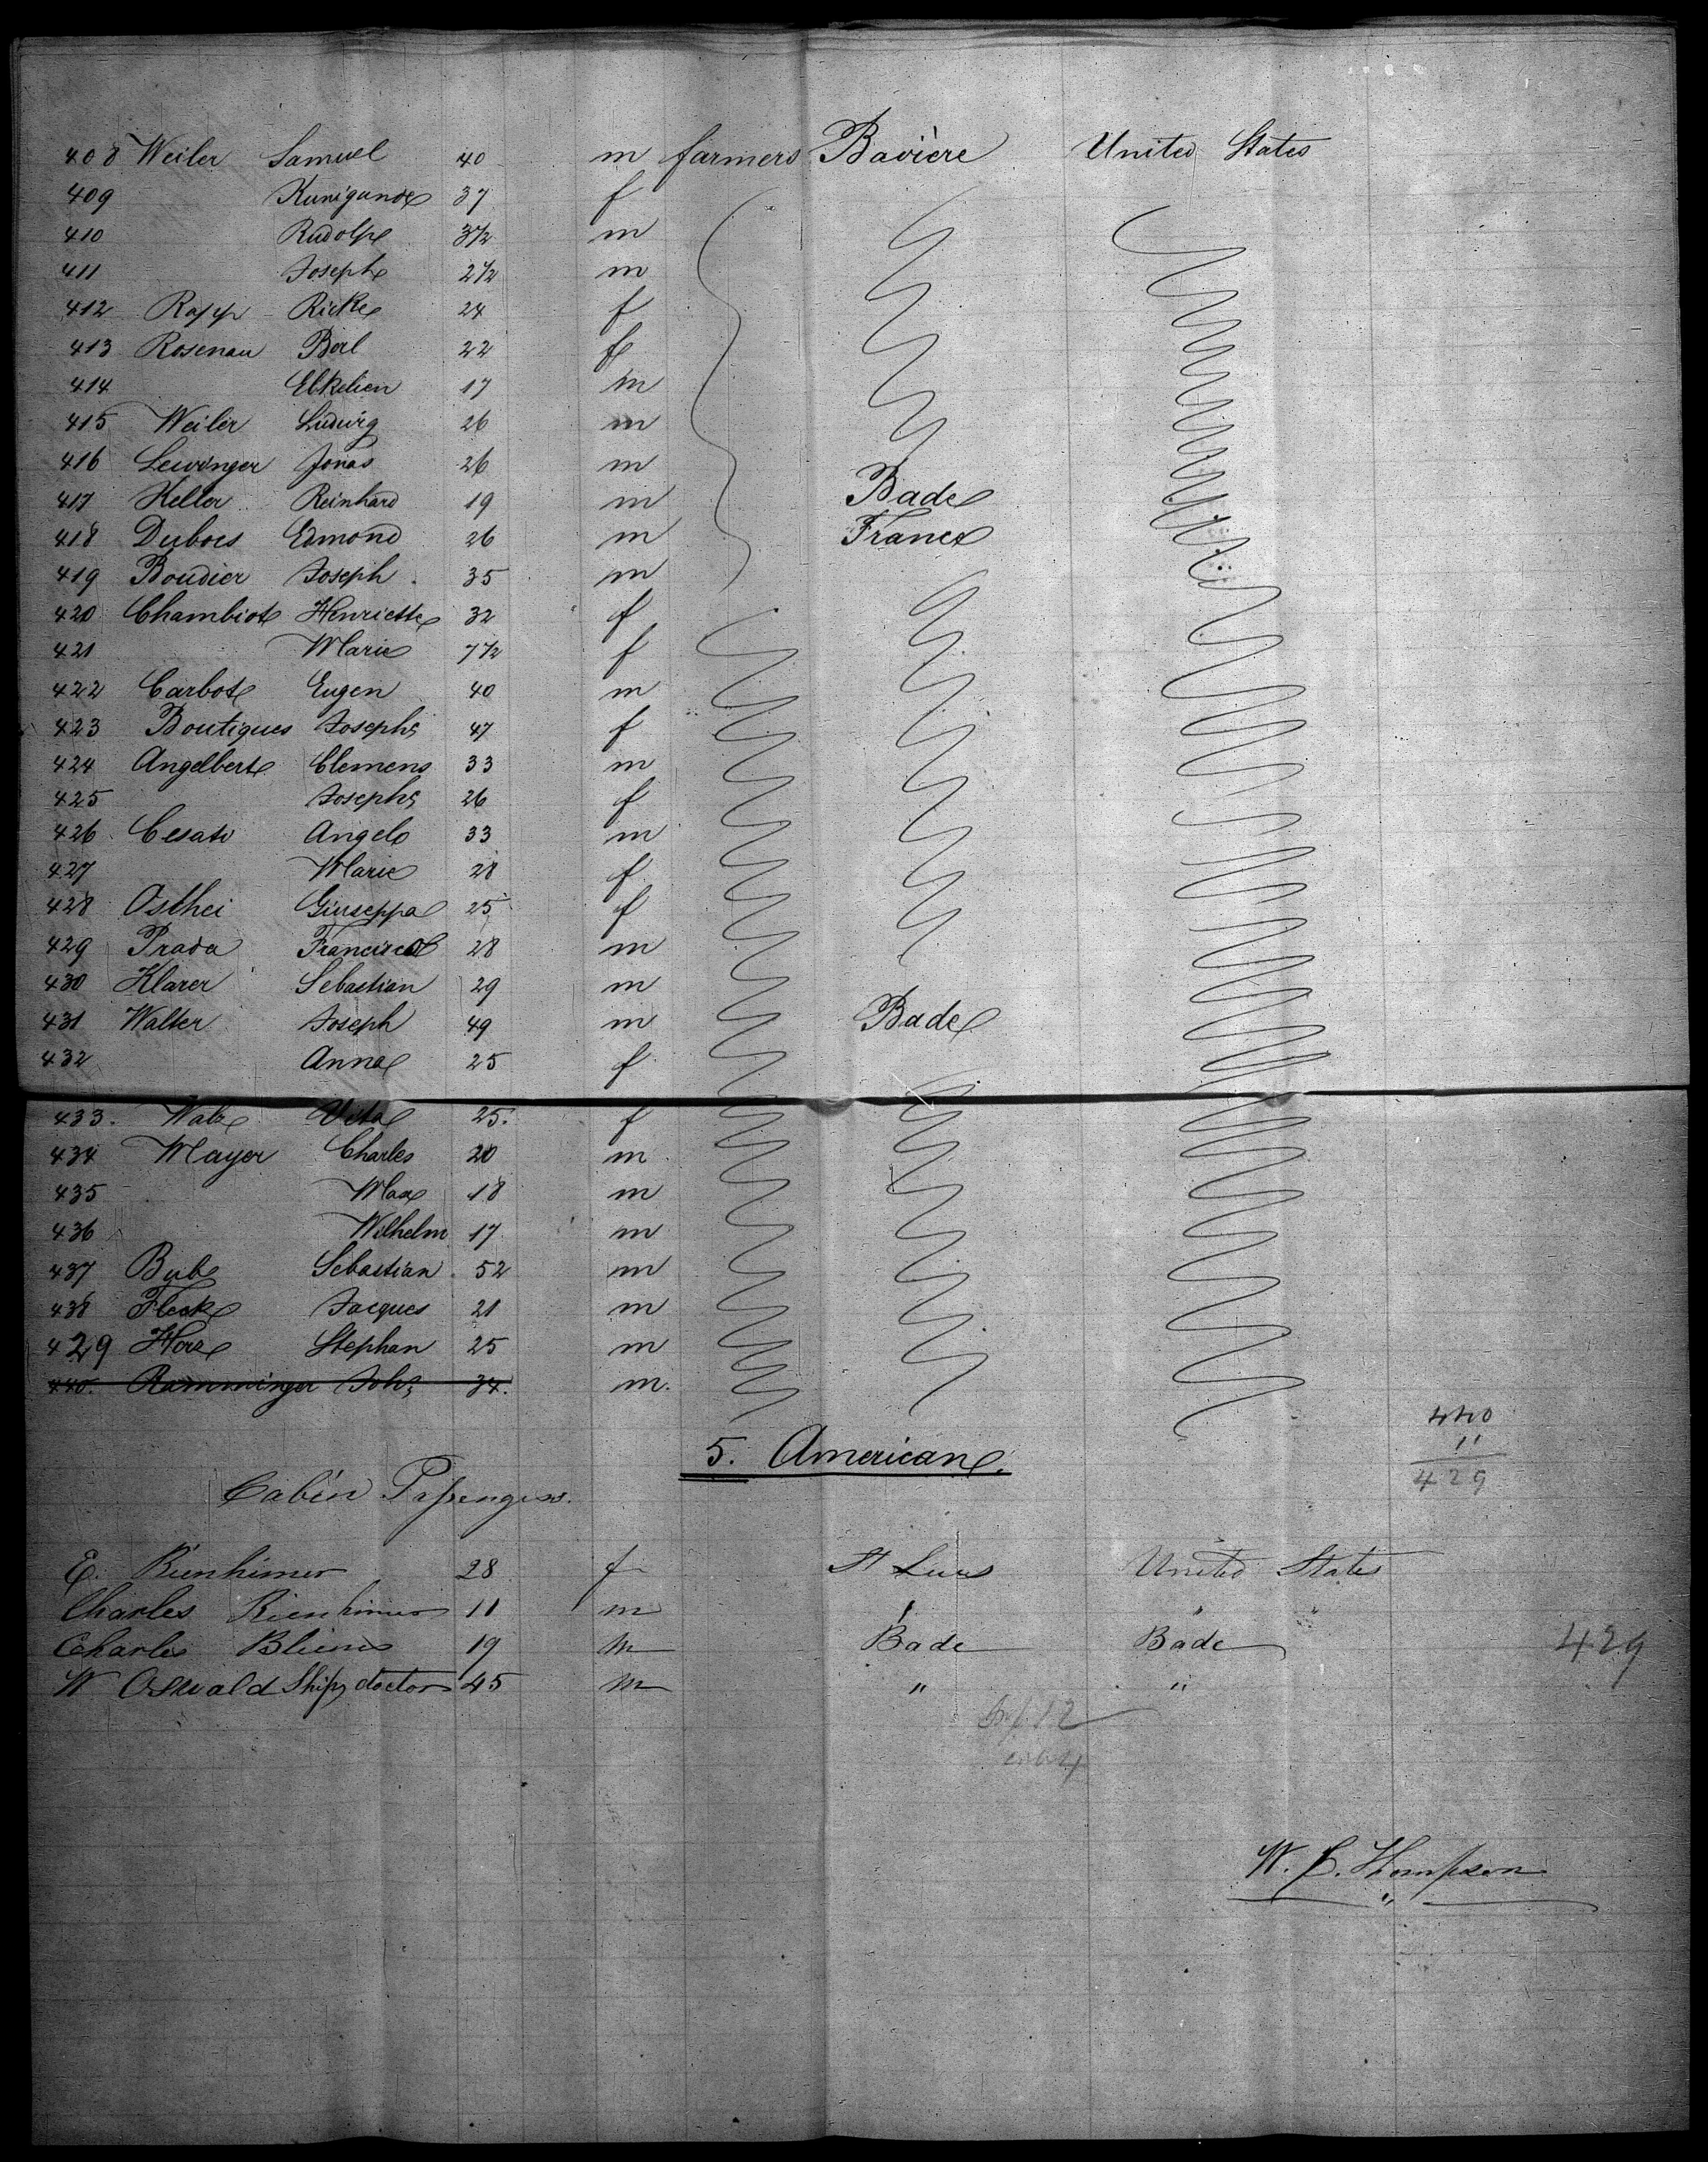 408 Weiler Samuel 40 m farmers Bavière United States
409 Kunigunde 37 f
410 Rudolph 3 1/2 m
411 Joseph 2 1/2 m
412 Rapp Ricke 24 f
413 Rosenau 22 f
414 17 m
415 Weiler Ludwig 26 m
416 Lewinger Jonas 26 m
417 Keller Reinhard 19 m Bade
418 Dubois Edmond 26 m France
419 Boudier Joseph 35 m
420 Chambiot Henriette 32 f
421 Marie 7 1/2 f
422 Carbot Eugen 40 m
423 Boutiques Josephe 47 f
424 Angelbert Clemens 33 m
425 Josephe 26 f
426 Cesato Angelo 33 m
427 Marie 28 f
428 Osthei Giuseppa 25 f
429 Prada Francisco 28 m
430 Klarer Sebastian 29 m
431 Walter Joseph 49 m Bade
432 Anna 25 f
433. 25. f
434 Mayer Charles 20 m
435 Max 18 m
436 Wilhelm 17 m
437 Bube Sebastian 52 m
438 Fleck Jacques 21 m
429 Stephan 25 m
440. Ramminger Joh. 34. m.
440
11
429
5. American
Cabin Passengers.
E. Rienhimer 28 f St Luis United States
Charles Rienhimer 11 m " " "
Charles 19 m Bade Bade
429
W Oswald Ships doctor 45 m " "
W. C. Thompson